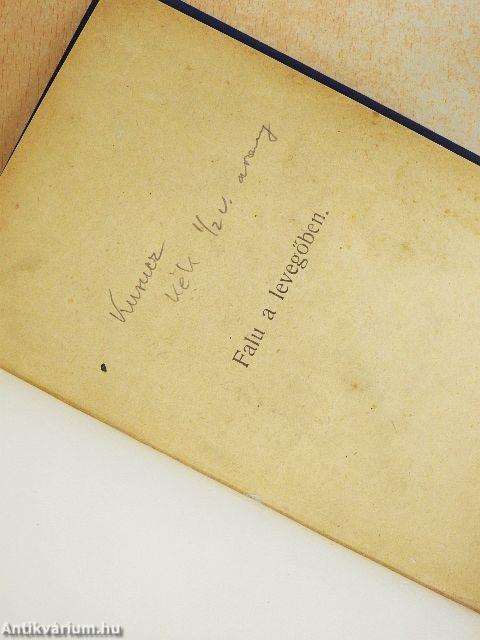 Kunicz
kék 1/2 v. arany
Falu a levegőben.
Antikvárium.hu